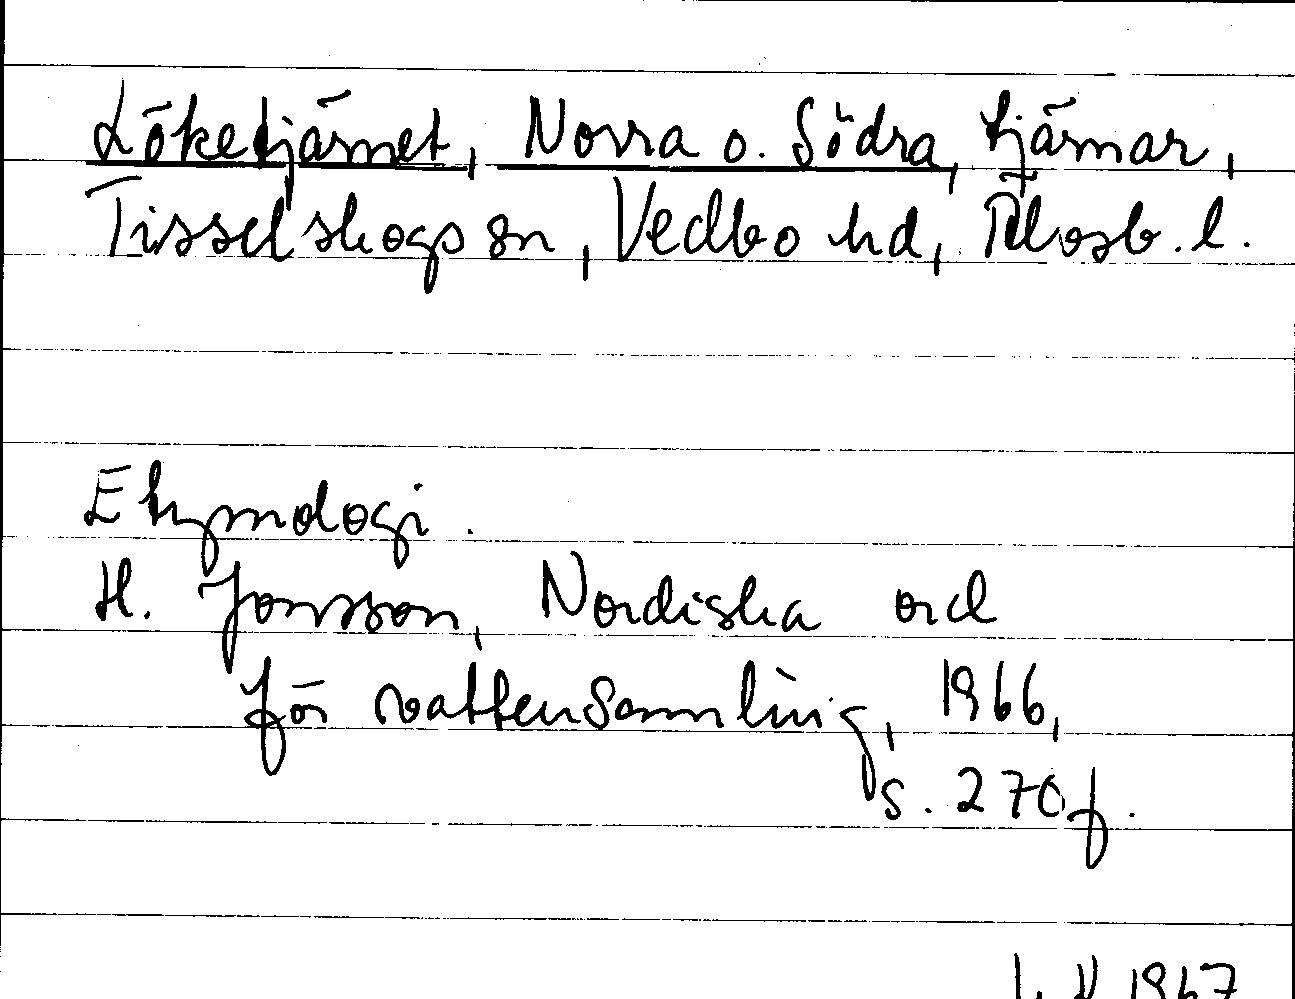 Löketjärnet, Norra o. Södra, tjärnar,
Tisselskogs sn, Vedbo hd, Älvsb. l.
Etymologi.
H. Jonsson, Nordiska ord
för vattensamling, 1966,
s. 270 f.
1967